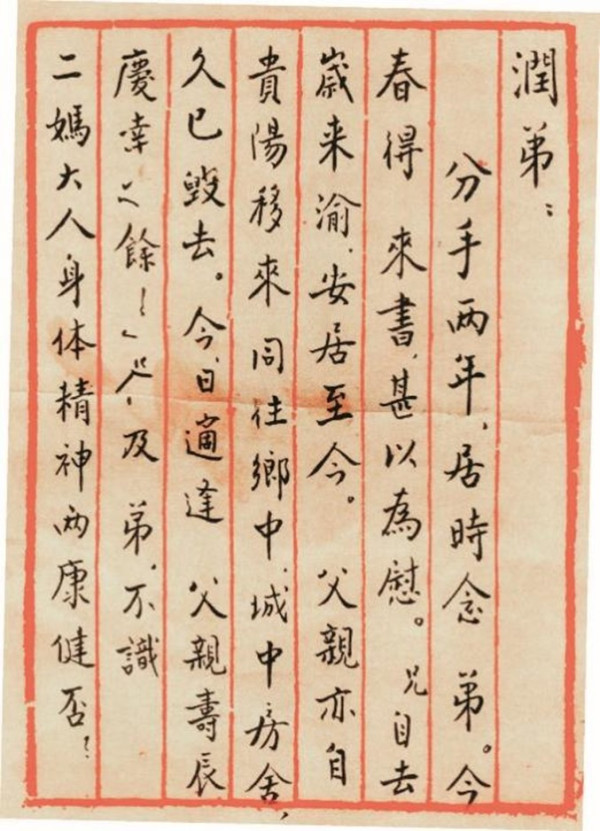 潤弟：
分手两年、居時念 弟。今
春得 來書、甚以為慰。兄自去
歲来渝、安居至今。 父親亦自
貴陽移來 同住鄉中、城中房舍、
久已毀去。今日適逢 父親壽辰
慶幸之餘 及 弟、不識
二媽大人身体精神两康健否？